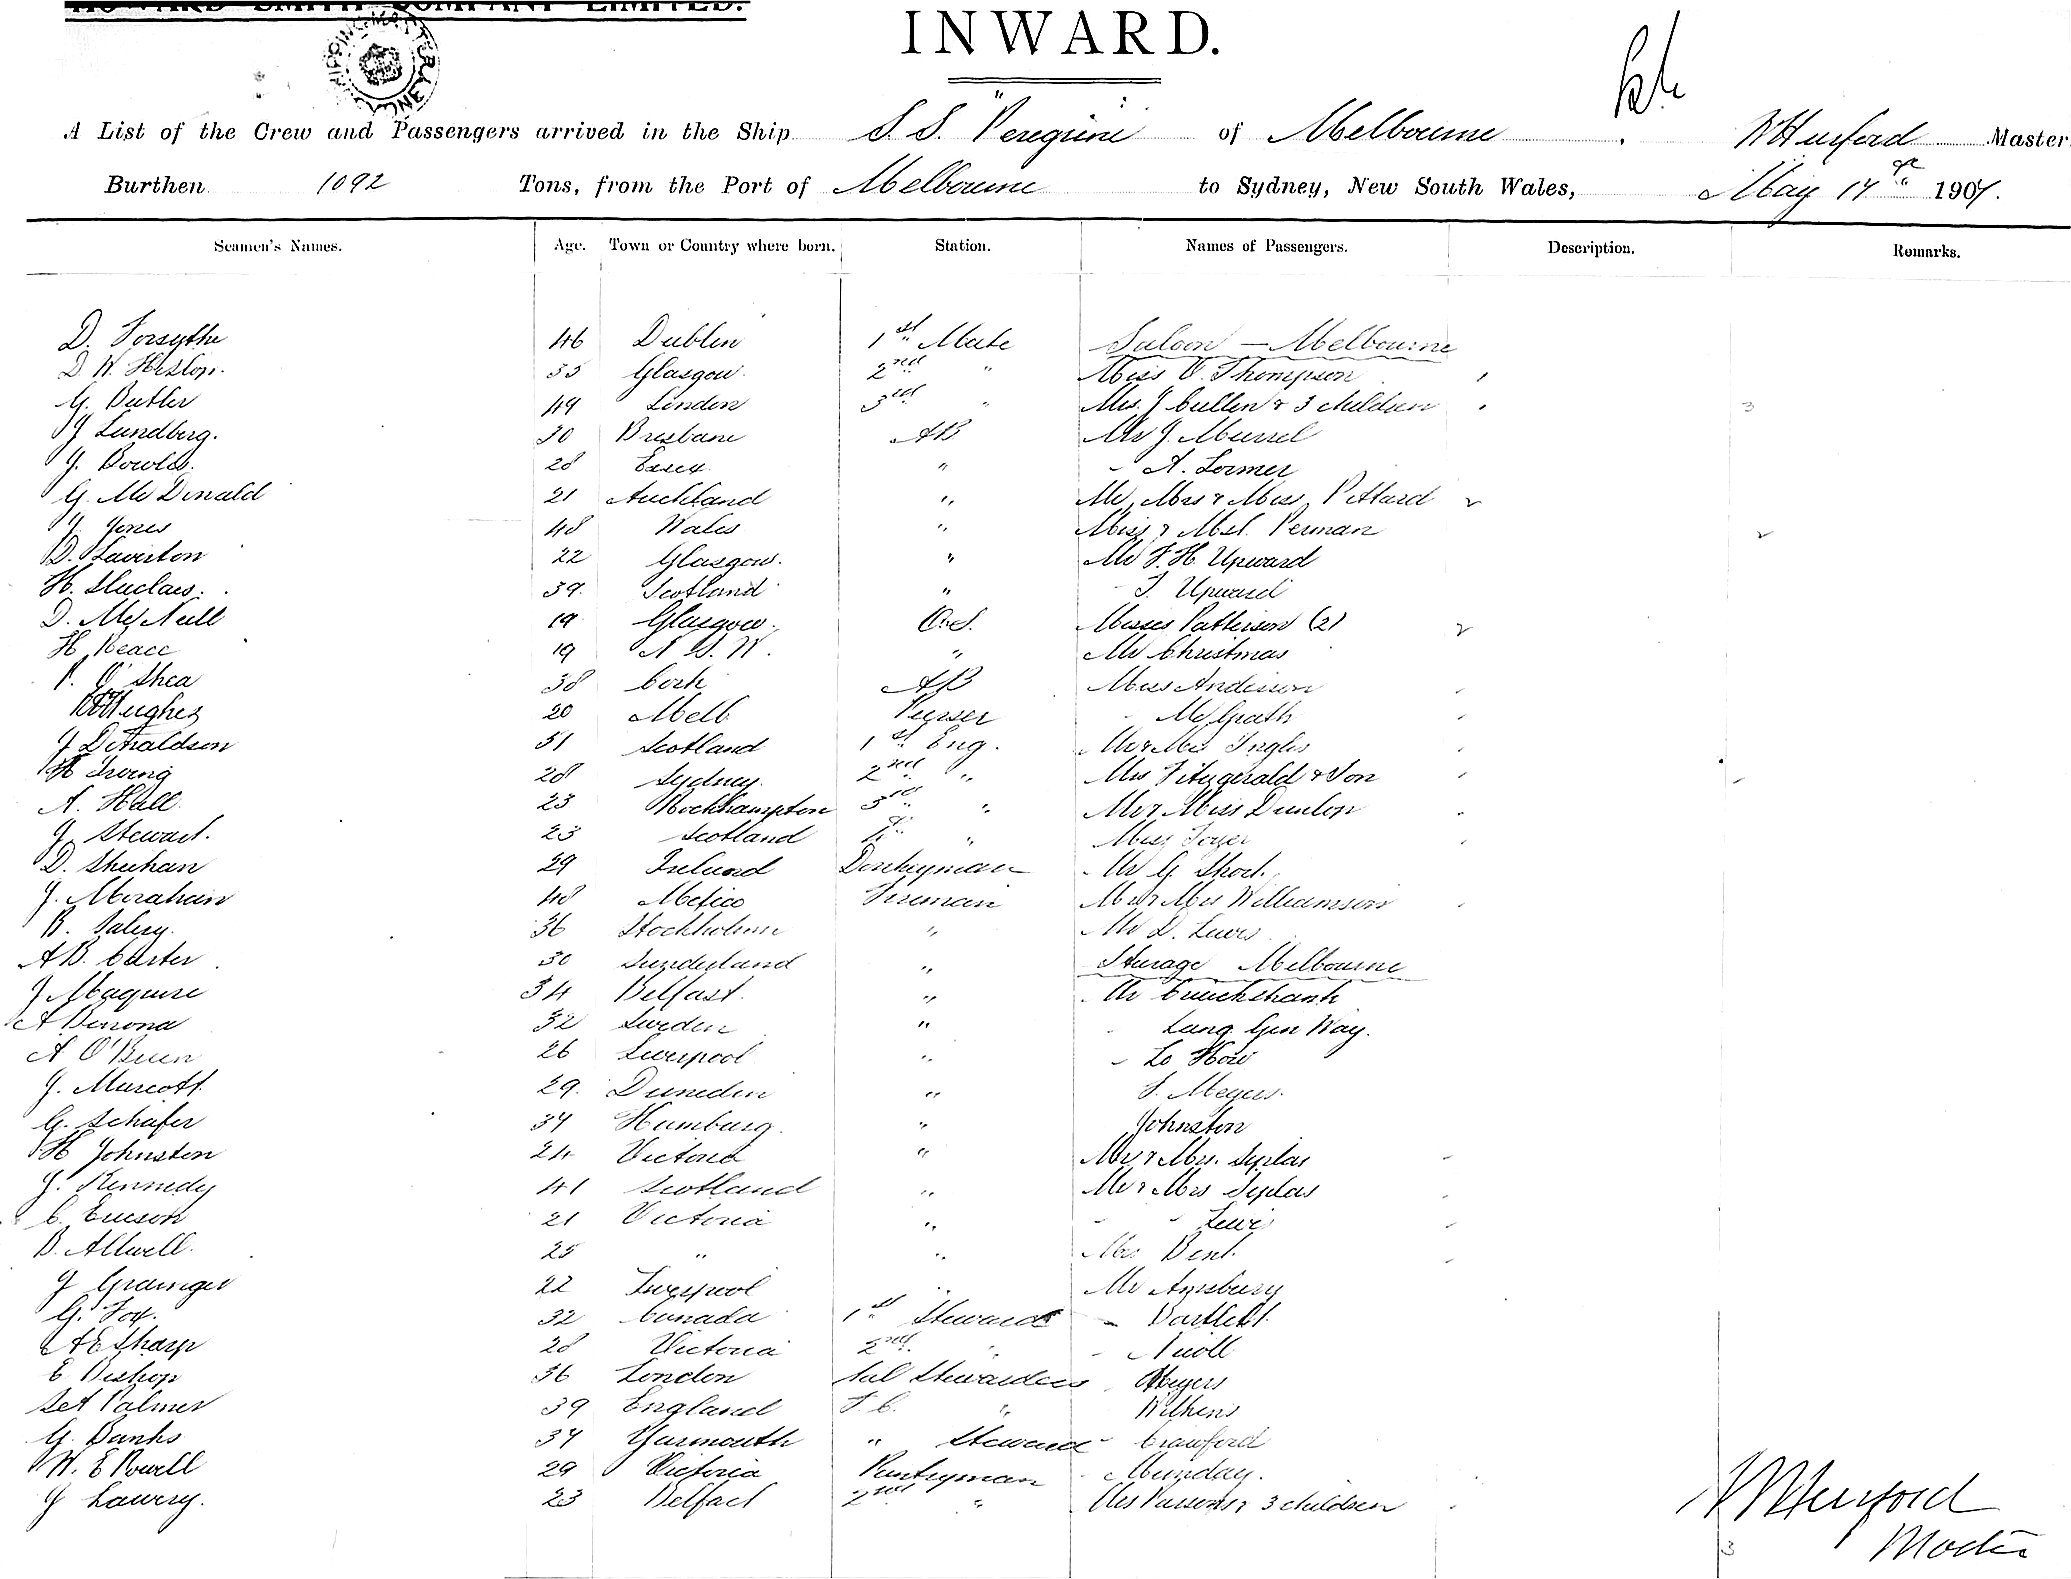 HOWARD SMITH COMPANY LIMITED.
INWARD.
A List of the Crew and Passengers arrived in the Ship S.S. "Peregrine" of Melbourne Master
Burthen 1092 Tons, from the Port of Melbourne to Sydney, New South Wales, May 17th 1907.
Seamen's Names. Age. Town or Country where born. Station. Names of Passengers. Description. Remarks.
D. Forsythe 46 Dublin 1st Mate Saloon — Melbourne
D W. Heslop. 35 Glasgow. 2nd " Miss V. Thompson
G. Butler 49 London 3rd " Mrs. J Cullen & 3 children 3
J Lundberg. 30 Brisbane AB Mr J. Murrel
J. Bowles. 28 Essex " " A. Lormer
G. McDonald 21 Auckland " Mr, Mrs & Miss Pittard
J. Jones 48 Wales " Miss & Mst. Perman
D. Laverton 22 Glasgow. " Mr F. H. Upward
39. Scotland " Upward
D. McNeill 19 Glasgow. O.S. Misses Patterson (2)
H. Peace 19 N. S. W. " Mr Christmas
P. O'Shea 38 Cork AB Miss Anderson
Hughes 20 Melb Purser " McGrath
J Donaldson 51 Scotland 1st Eng. Mr & Mrs Inglis
H Irving 28 Sydney. 2nd " Mrs Fitzgerald & Son
A. Hall 23 Rockhampton 3rd " Mr & Miss Dunlop
J. Stewart. 23 Scotland " Miss
D. Sheehan 29 Ireland Donkeyman Mr G. Short.
J. 48 Mexico Fireman Mr & Mrs Williamson
36 Stockholm " Mr D. Lewis
A B. Carter 30 Sunderland " Steerage Melbourne
J Maguire 34 Belfast. " Mr Cruickshank
A 32 Sweden " " Lang Gen Way.
A O'Brien 26 Liverpool " " Lo How
J. Marcott. 29. Dunedin " S. Meyers.
G. Schafer 34 Hamburg. " Johnston
H Johnston 24 Victoria " Mr & Mrs.
J. Kennedy 41 Scotland " Mr & Mrs
C. Ericson 21 Victoria " " "
B. Allwell. 25 " " Mrs Bent.
J Grainger 22 Liverpool " Mr
G. Fox. 32 Canada 1st Steward " Bartlett.
A E Sharp 28 Victoria 2nd " " Nicoll
E Bishop 36 London Sal Stewardess Meyers
Palmer 39 England " Wilkens
G. Banks 34 Yarmouth " Steward " Crawford
W. E Powell 29 Victoria Pantryman " Munday.
J Lawery. 23 Belfast 2nd " Mrs Parsons & 3 children
3